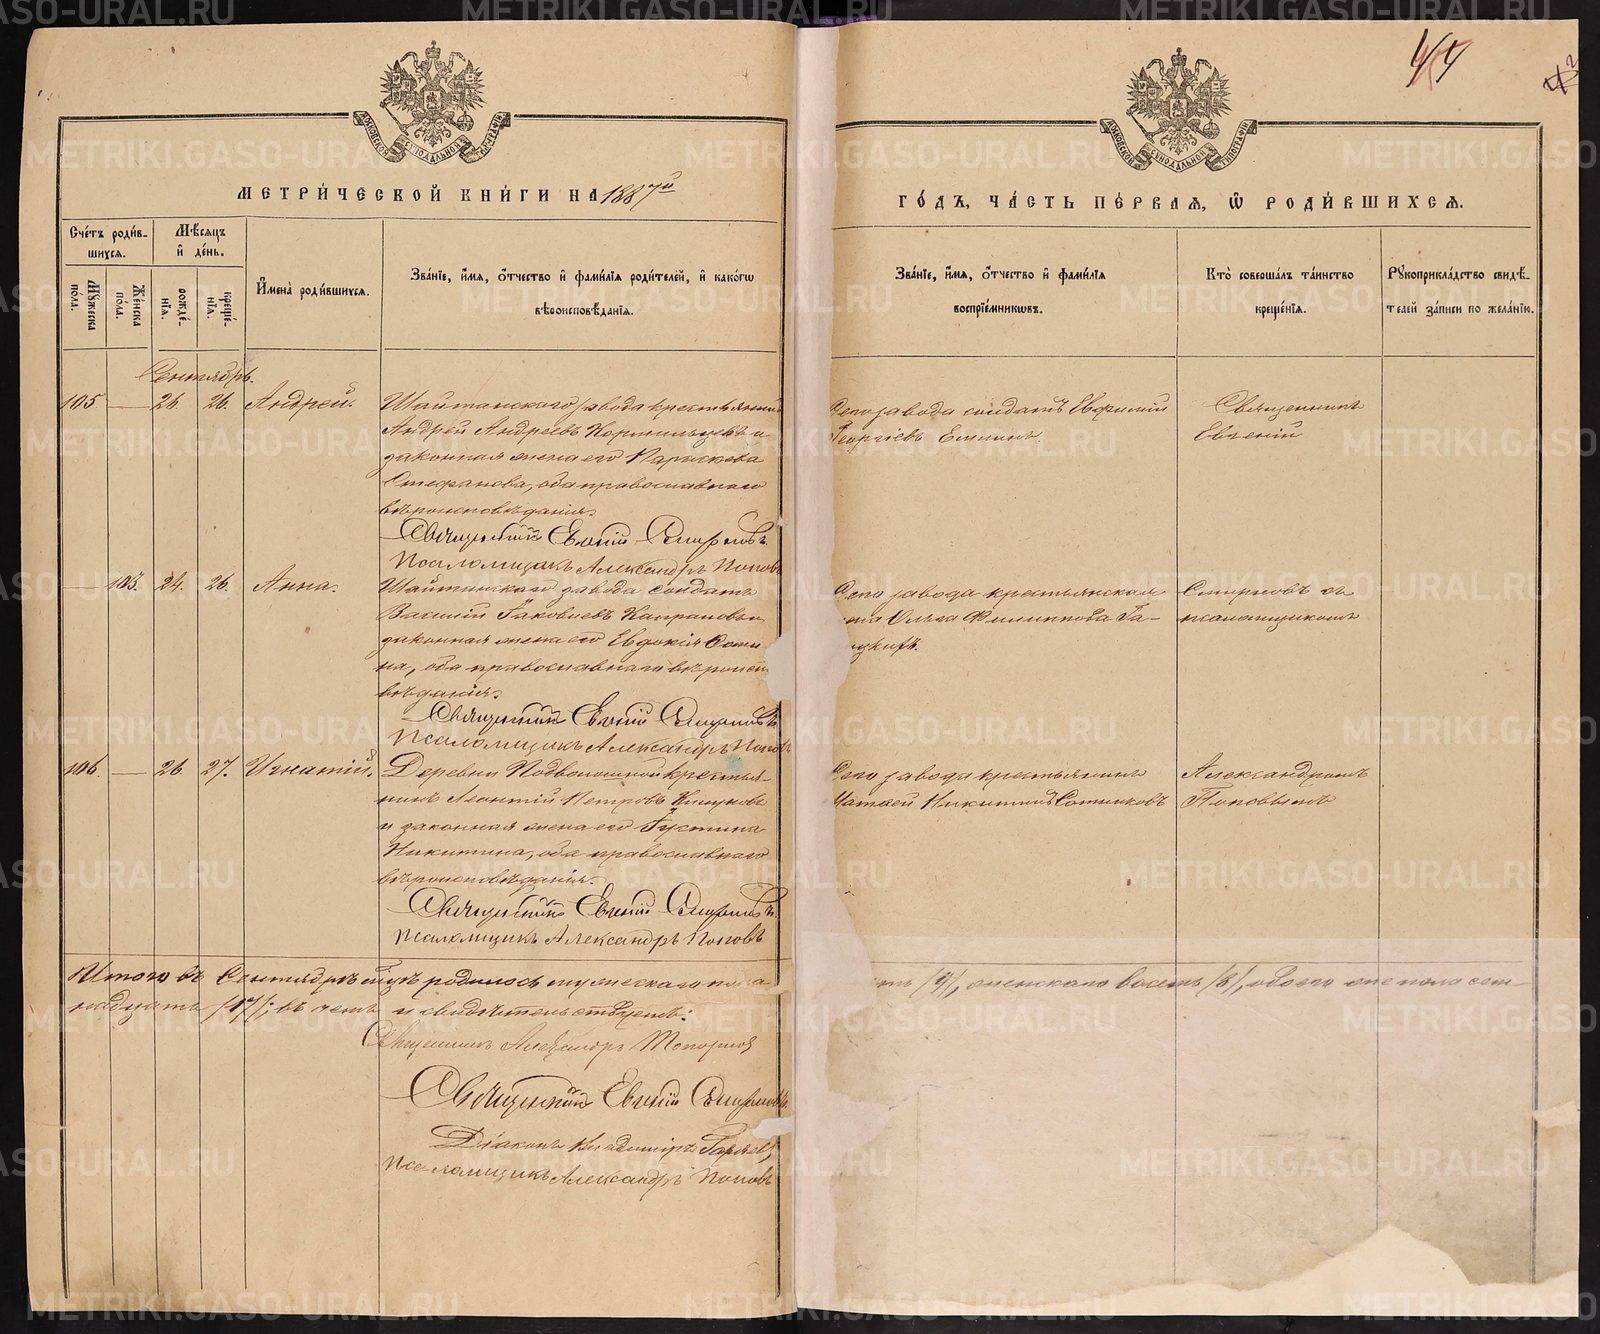 МЕТРИ́ЧЕСКОЙ КНИ́ГИ НА 1887й
ГО́ДЪ, ЧА́СТЬ ПЕ́РВАЯ, Ѿ РОДИ́ВШИХСЯ.
Сче́тъ роди́в-
шихся.
Мѣ́сяцъ
и҆ де́нь.
Мꙋжеска пола.
Же́нска по́ла.
рожде́нїя.
креще́нїя.
И҆мена̀ роди́вшихся.
Зва́нїе, и҆́мя, ѻ҆́тчество и҆ фами́лїя роди́телей, и҆ како́гѡ
вѣроисповѣ́данїя.
Зва́нїе, и҆́мя, ѻ҆́тчество и҆ фами́лїя
воспрїе́мникѡвъ.
Кто̀ соверша́лъ та́инство
креще́нїя.
Рꙋкоприкла́дство свидѣ́-
телей за́писи по жела́нїю.
Сентябрь.
105 — 26. 26. Андрей.
Шайтанскаго завода крестьянинъ
Андрей Андреевъ Кормильцевъ и
законная жена его Параскева
Стефанова, оба православнаго
вѣроисповѣданія.
Священникъ Евгеній Смирновъ
Псаломщикъ Александръ Поповъ
Сего завода солдатъ Евфимій
Георгіевъ
Священникъ
Евгеній
— 105. 24. 26. Анна.
Шайтанскаго завода солдатъ
Василій Іаковлевъ и
законная жена его Евдокія
на, оба православнаго вѣроиспо
вѣданія.
Священникъ Евгеній Смирновъ
Псаломщикъ Александръ Поповъ
Сего завода крестьянская
Ольга Филиппова
Смирновъ съ
псаломщикомъ
106. — 26. 27. Игнатій.
Деревни Подволошной крестья-
нинъ Леонтій Петровъ
и законная жена его Іустина
Никитина, оба православнаго
вѣроисповѣданія.
Священникъ Евгеній Смирновъ
Псаломщикъ Александръ Поповъ
Сего завода крестьянинъ
Матвей Никитинъ Сотниковъ
Александромъ
Поповымъ
Итого въ Сентябрѣ м-цѣ родилось мужескаго пола
/9/, женскаго восемь /8/, обоего же пола сем-
надцать /17/; въ чемъ и свидѣтельствуемъ:
Священникъ Александръ Топорковъ
Священникъ Евгеній Смирновъ
Діаконъ Владимиръ
Псаломщикъ Александръ Поповъ
METRIKI.GASO-URAL.RU